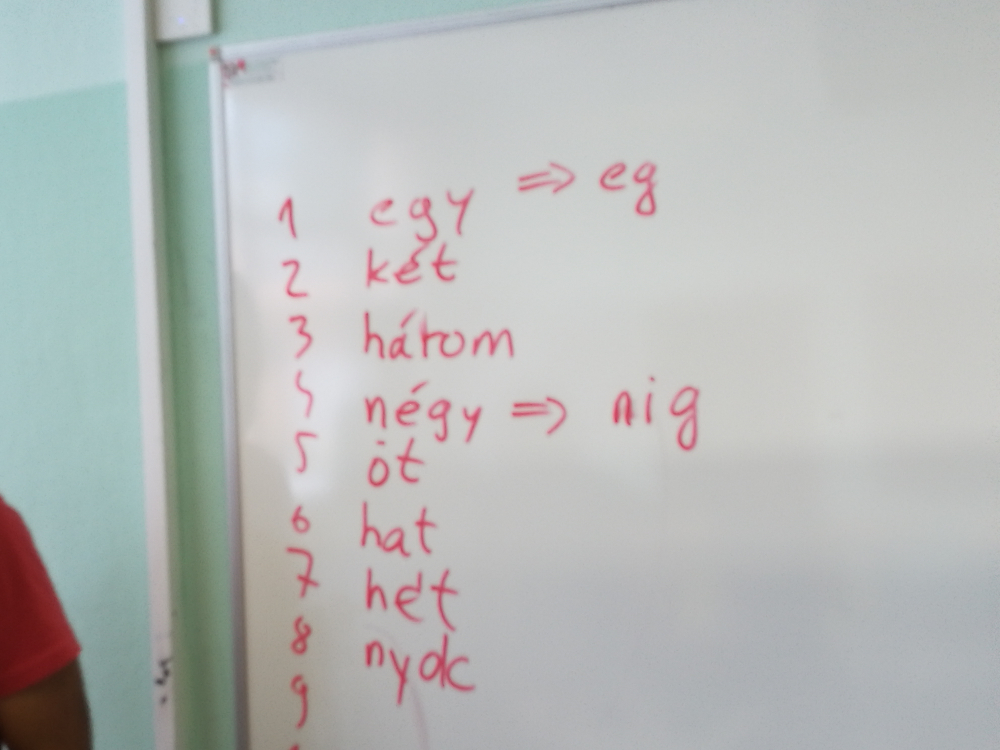 1 egy ⇒ eg
2 két
3 három
4 négy ⇒ nig
5 öt
6 hat
7 hét
8 nyolc
9